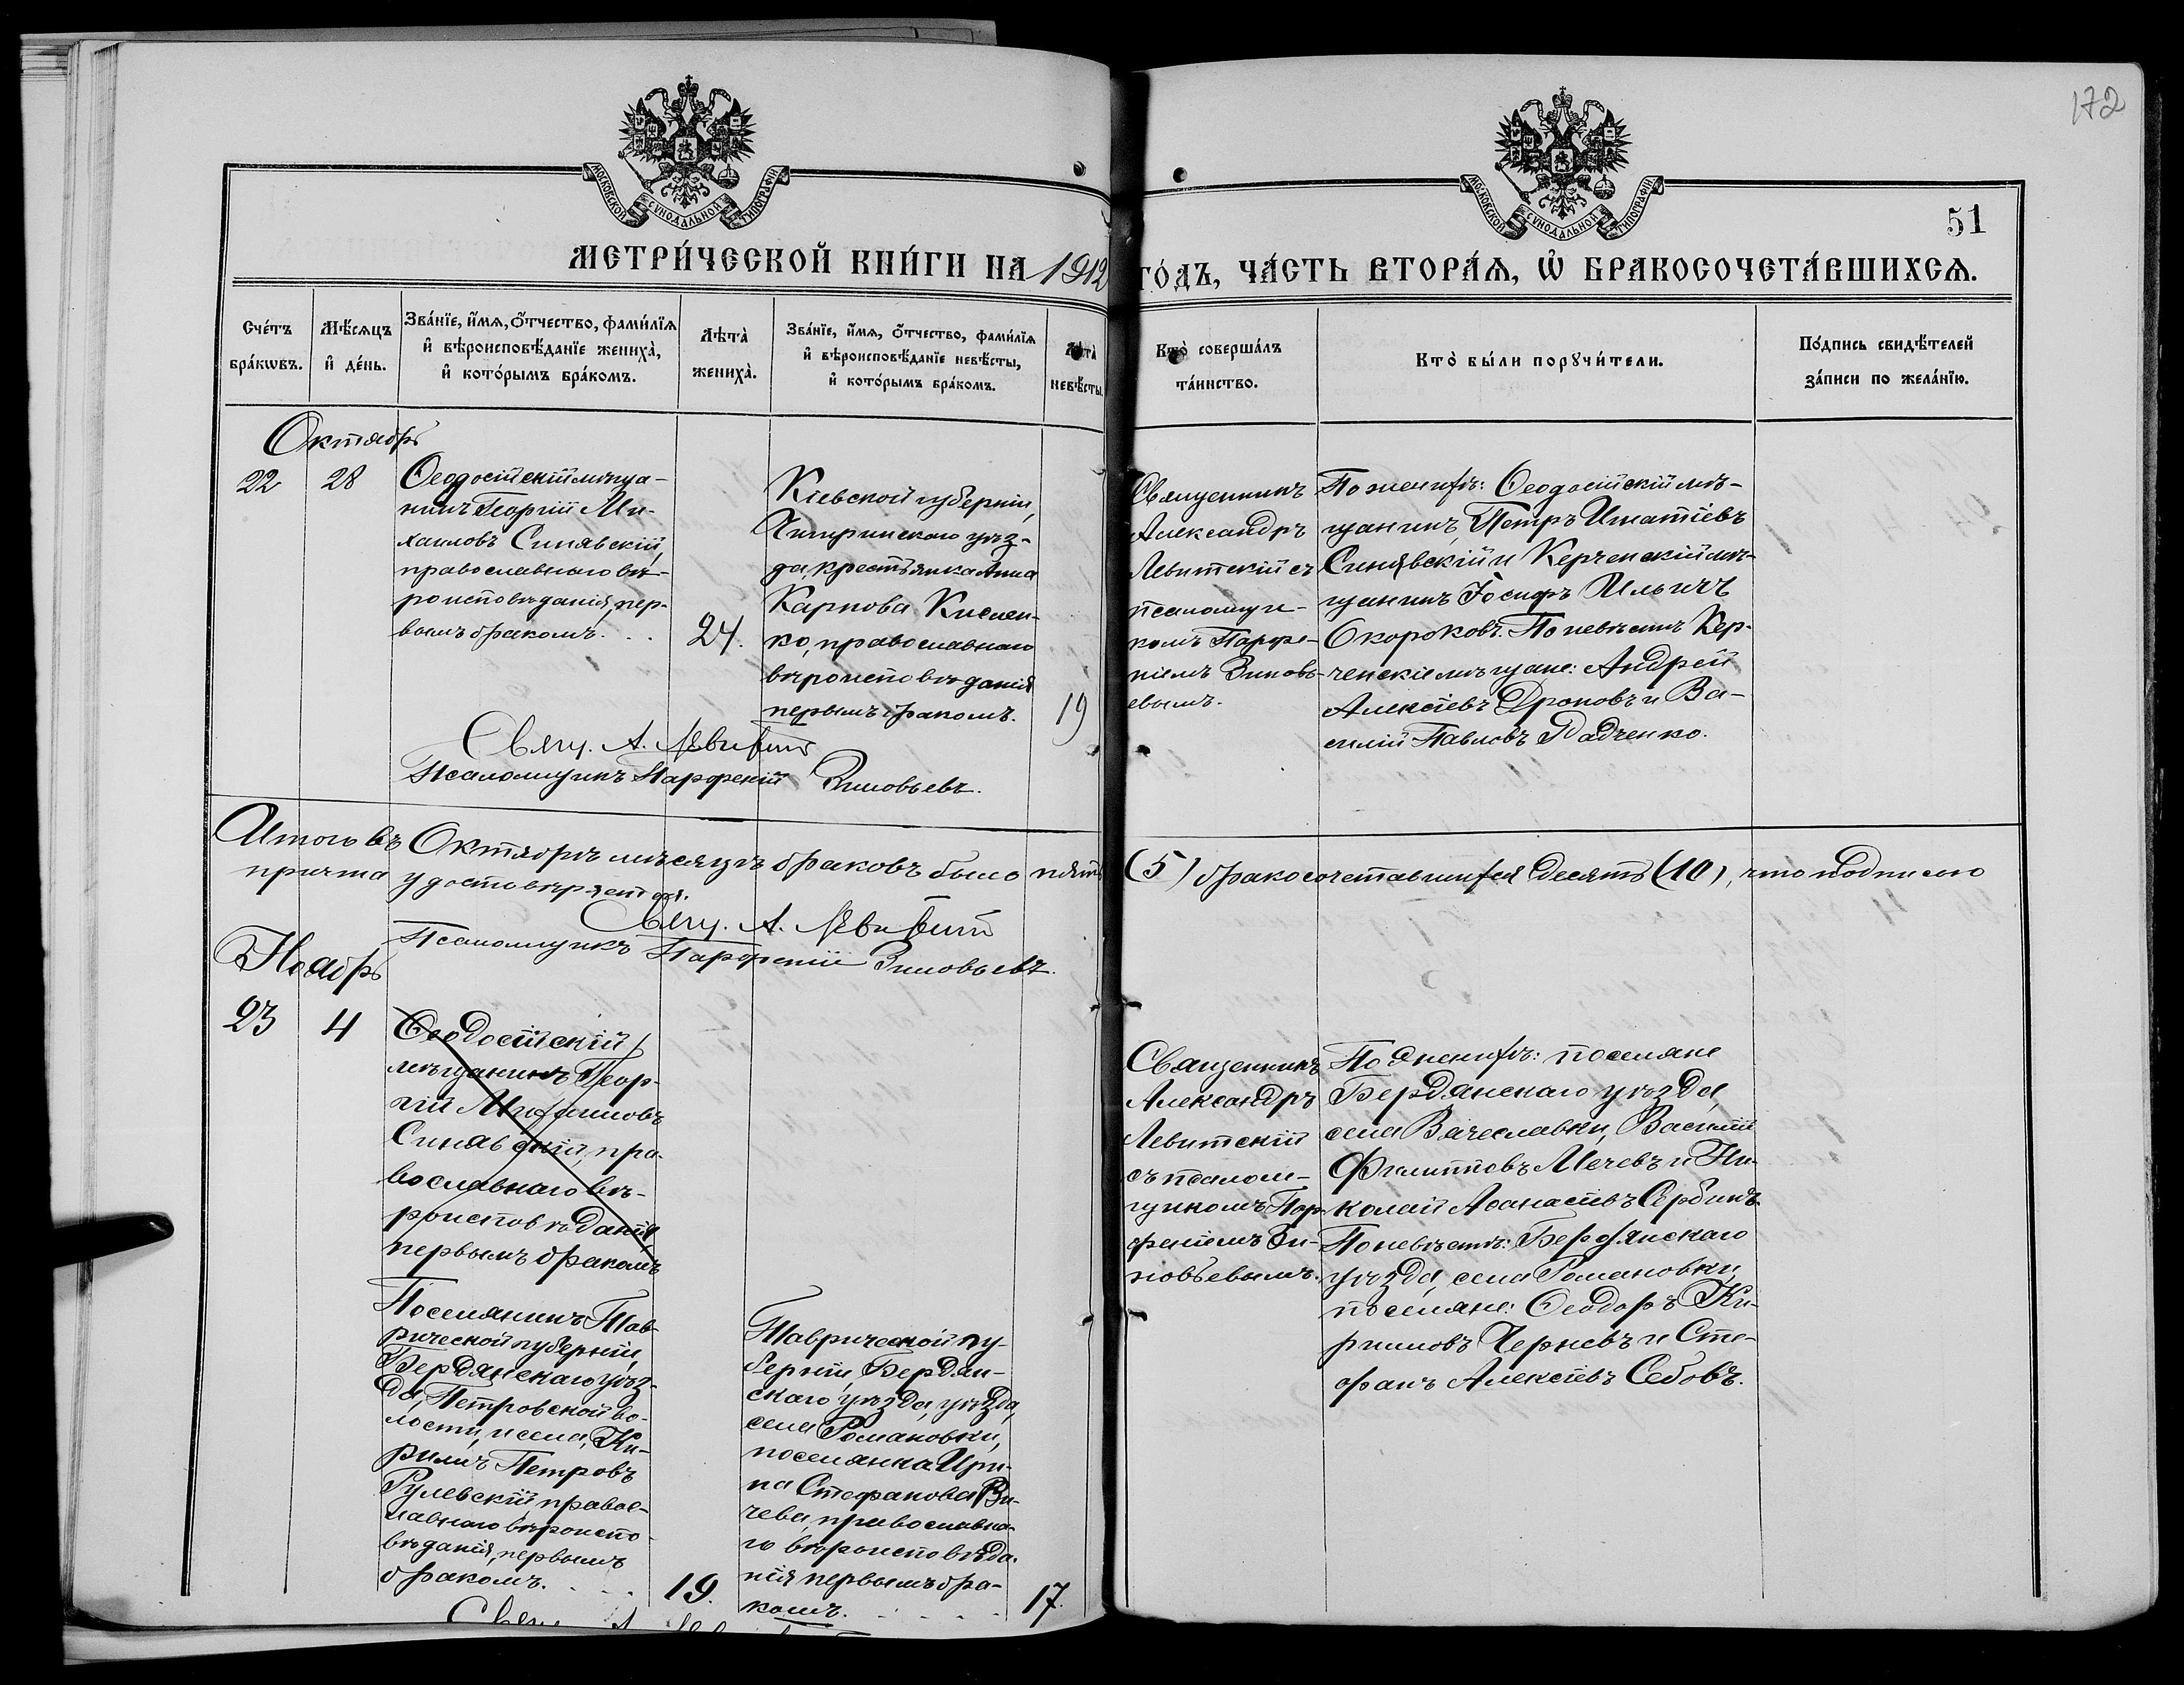 172
МОСКОВСКОЙ СѴНОДАЛЬНОЙ ТИПОГРАФІИ
МОСКОВСКОЙ СѴНОДАЛЬНОЙ ТИПОГРАФІИ
51
МЕТРИ́ЧЕСКОЙ КНИ́ГИ НА 1912 ГО́ДЪ, ЧА́СТЬ ВТОРА́Ѧ, Ѽ БРАКОСОЧЕТА́ВШИХСѦ.
Сче́тъ
бра́кѡвъ.
Мѣ́сяцъ
и҆ де́нь.
Зва́нїе, и҆́мѧ, ѻ҆́тчество, фами́лїѧ
и҆ вѣроисповѣ́данїе жениха̀,
и҆ кото́рымъ бра́комъ.
Лѣта̀
жениха̀.
Зва́нїе, и҆́мѧ, ѻ҆́тчество, фами́лїѧ
и҆ вѣроисповѣ́данїе невѣ́сты,
и҆ кото́рымъ бра́комъ.
Лѣта̀
невѣ́сты.
Кто̀ соверша́лъ
та́инство.
Кто̀ бы́ли порꙋчи́тели.
По́дпись свидѣ́телей
за́писи по жела́нїю.
Октябрь
22
28
Ѳеодосійскій мѣща-
нинъ Георгій Ми-
хаиловъ Синявскій,
православнаго вѣ-
роисповѣданія, пер-
вымъ бракомъ. . .
24.
Кіевской губерніи,
Чигиринскаго уѣз-
да, крестьянка Анна
Карпова Кислен-
ко, православнаго
вѣроисповѣданія
первымъ бракомъ.
19
Священникъ
Александръ
Левитскій съ
псаломщи-
комъ Парфе-
ніемъ Зиновь-
евымъ.
По женихѣ: Ѳеодосійскій мѣ-
щанинъ, Петръ Игнатіевъ
Синявскій и Керченскій мѣ-
щанинъ Іосифъ Ильичъ
Скороковъ. По невѣстѣ Кер-
ченскіе мѣщане: Андрей
Алексіевъ Дроновъ и Ва-
силій Павловъ Радченко.
Свящ. А. Левитскій
Псаломщикъ Парфеній Зиновьевъ.
Итого въ Октябрѣ мѣсяцѣ браковъ было пять (5) бракосочетавшихся десять (10), что подписью
причта удостовѣряется.
Свящ. А. Левитскій
Псаломщикъ Парфеній Зиновьевъ.
Ноябрь
23
4
Ѳеодосійскій
мѣщанинъ Геор-
гій Михаиловъ
Синявскій, пра-
вославнаго вѣ-
роисповѣданія
первымъ бракомъ
Поселянинъ Тав-
рической губерніи,
Бердянскаго уѣз-
да, Петровской во-
лости, и села, Ки-
рилъ Петровъ
Рулевскій правос-
лавнаго вѣроиспо-
вѣданія, первымъ
бракомъ. . . .
19.
Таврической гу-
берніи, Бердян-
скаго уѣзда, уѣзда,
села Романовки,
поселянка Ири-
на Стефанова
чева, православна-
го вѣроисповѣда-
нія первымъ бра-
комъ. . . . .
17.
Священникъ
Александръ
Левитскій
съ псалом-
щикомъ Пар-
феніемъ Зи-
новьевымъ.
По женихѣ: поселяне
Бердянскаго уѣзда,
села Вячеславки, Василій
Филипповъ Мечевъ и Ни-
колай Аѳанасіевъ Сербинъ.
По невѣстѣ: Бердянскаго
уѣзда, села Романовки,
поселяне: Ѳеодоръ Ки-
рилловъ Черневъ и Сте-
фанъ Алексіевъ Себовъ.
Свящ. А.